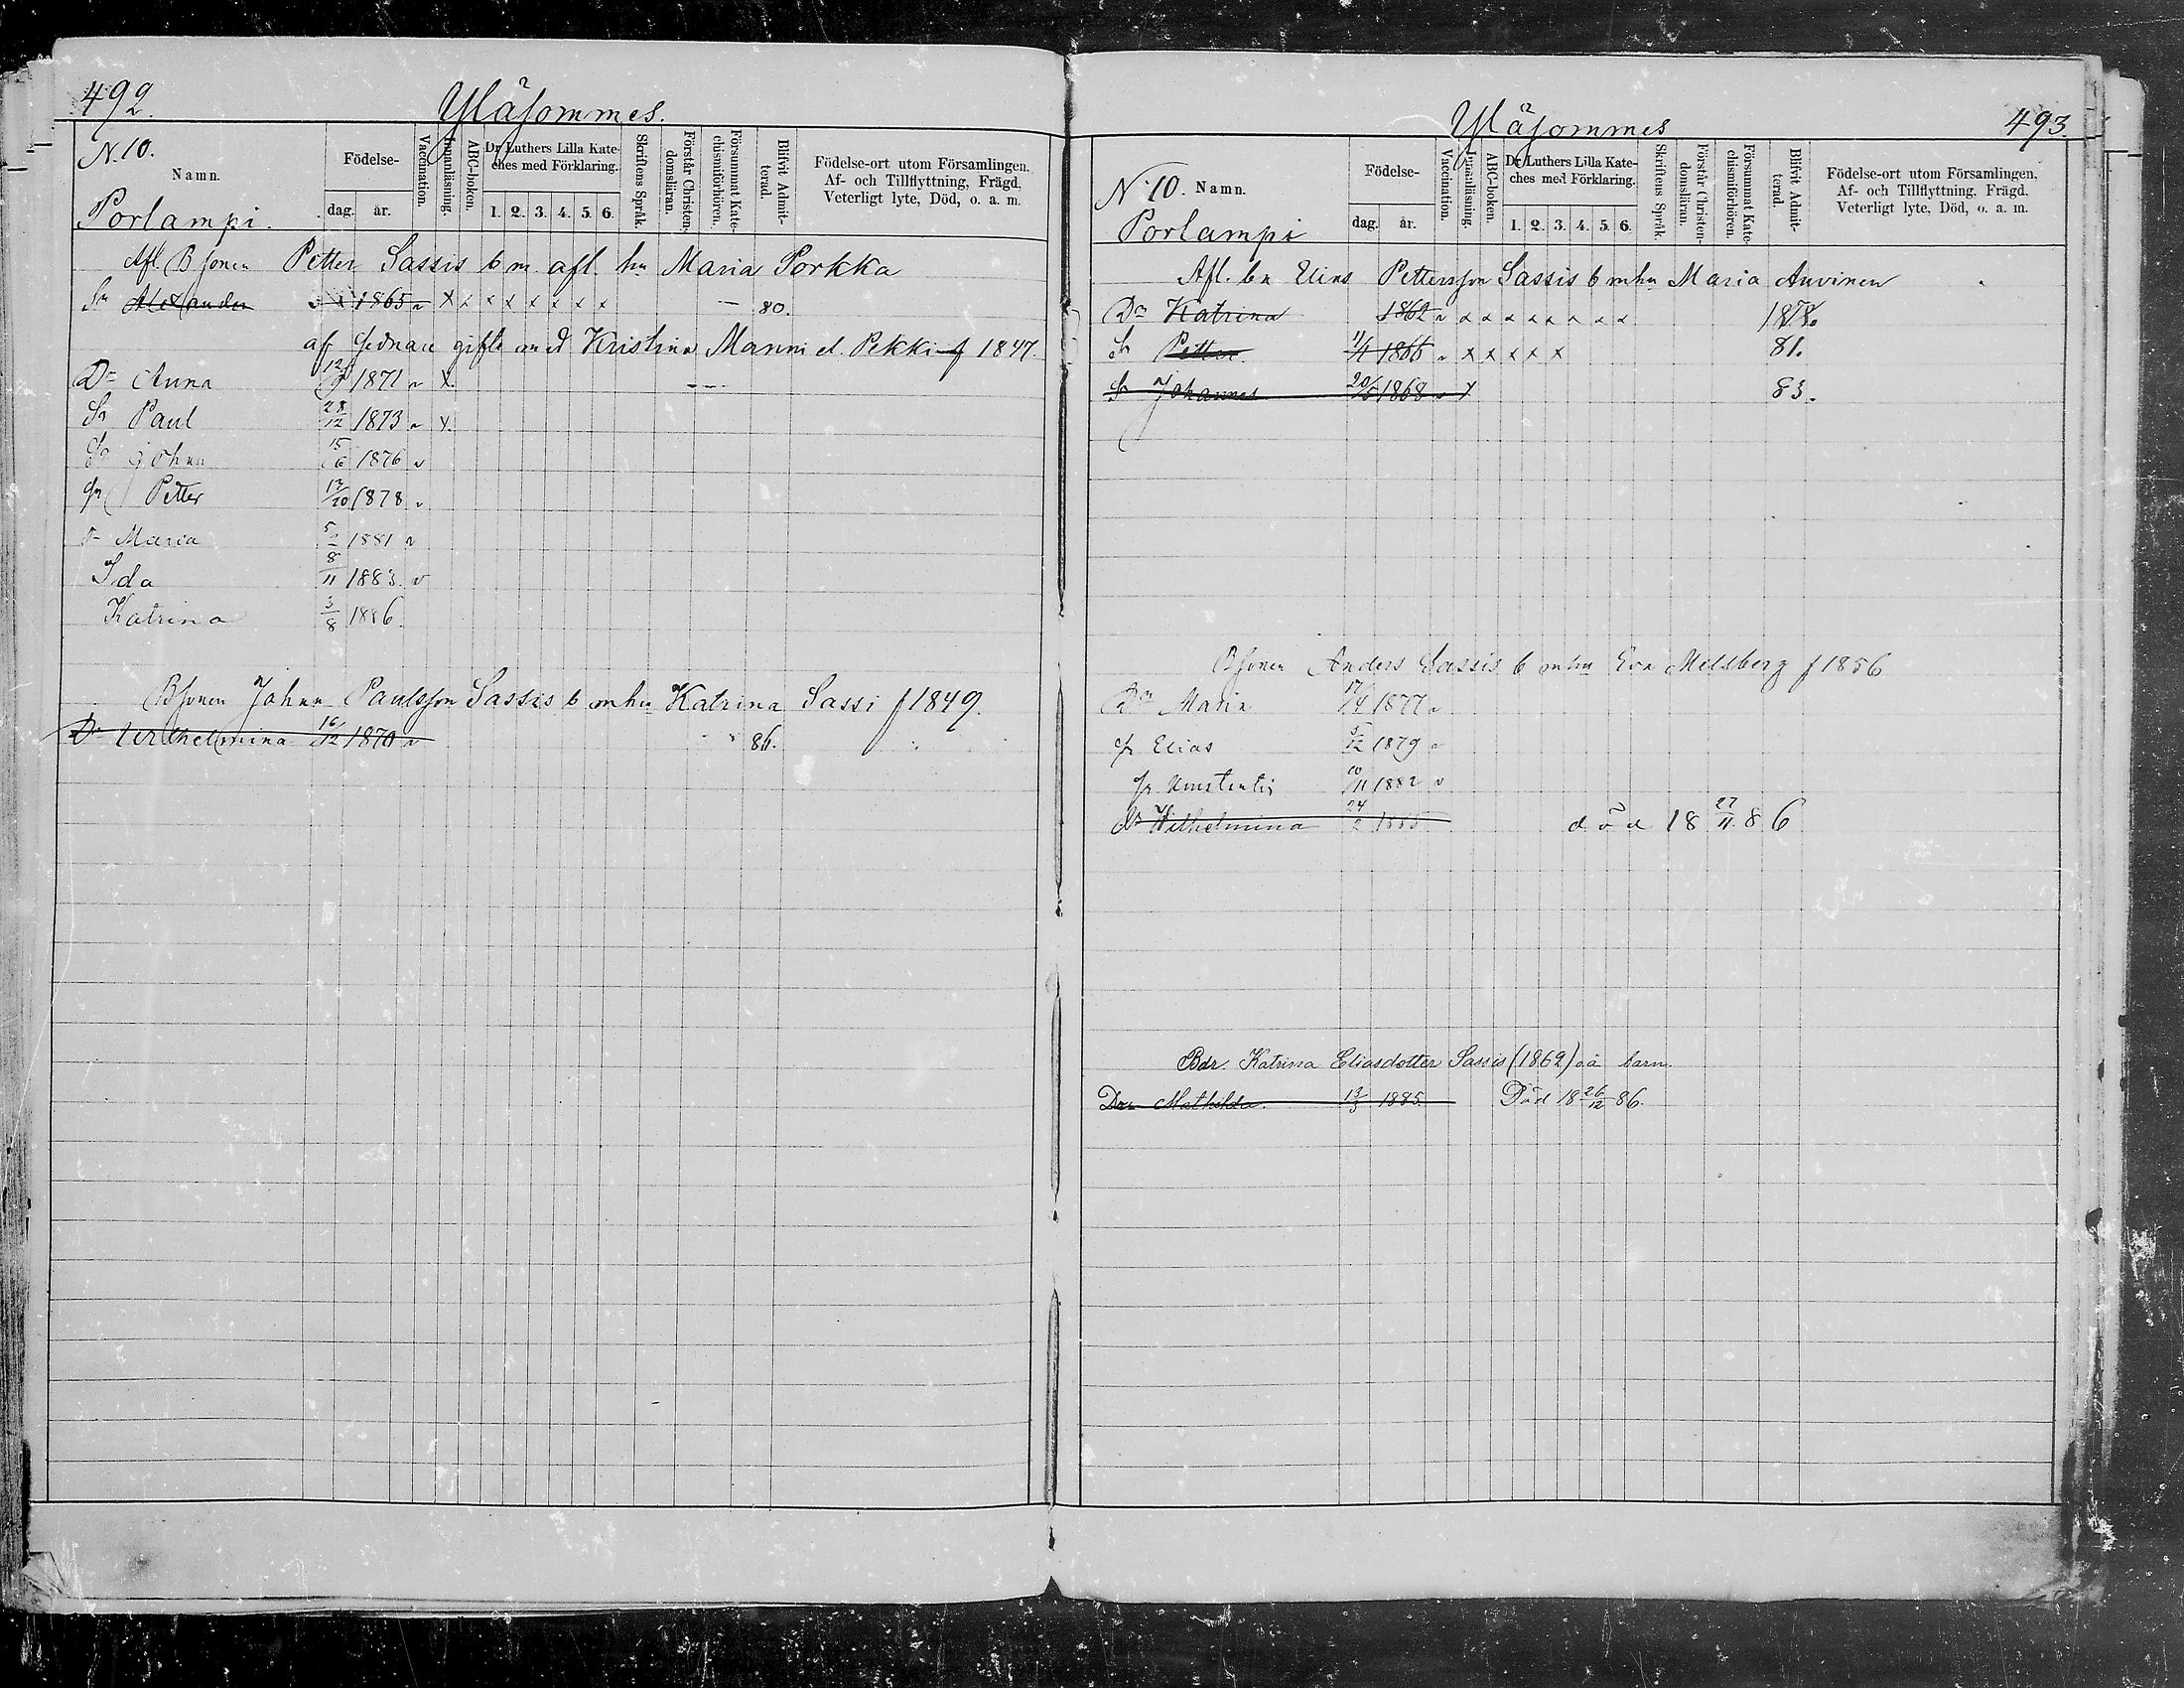 492.
Yläsommes.
N. 10.
Namn.
Födelse-
dag. år.
Vaccination.
Innanläsning.
ABC-boken.
Dr Luthers Lilla Kate-
ches med Förklaring.
1. 2. 3. 4. 5. 6.
Skriftens Språk.
Förstår Christen-
domsläran.
Försummat Kate-
chismiförhören.
Blifvit Admit-
terad.
Födelse-ort utom Församlingen.
Af- och Tillflyttning, Frägd,
Veterligt lyte, Död, o. a. m.
Porlampi.
Afl. Bsonen Petter Sassis b m afl. hu Maria Porkka
Sn Alexander 1865 v x x x x x x x x — 80.
af sednare gifte med Kristina Manni el. Pekki f 1847.
Dr Anna 12/9 1871 v x.
Sn Paul 28/12 1873 v x.
Sn Johan 15/6 1876 v
Sn Petter 13/10 1878 v
Maria 5/2 1881 v
Ida 8/11 1883 v
Katrina 3/8 1886.
Bsonen Johan Paulsson Sassis b m hu Katrina Sassi f 1849.
Dr Wilhelmina 16/12 1870 v 86.
Yläsommes
493.
N. 10. Namn.
Födelse-
dag. år.
Vaccination.
Innanläsning.
ABC-boken.
Dr Luthers Lilla Kate-
ches med Förklaring.
1. 2. 3. 4. 5. 6.
Skriftens Språk.
Förstår Christen-
domsläran.
Försummat Kate-
chismiförhören.
Blifvit Admit-
terad.
Födelse-ort utom Församlingen,
Af- och Tillflyttning, Frägd.
Veterligt lyte, Död, o. a. m.
Porlampi
Afl. bn Elias Pettersson Sassis b m hu Maria Auvinen
Dr Katrina 1862 v x x x x x x x x
Sn Petter 11/1 1866 v x x x x x 81.
Sn Johannes 20/5 1868 v x 83.
Bsonen Anders Sassis b m hu Eva Milsberg f 1856
Dr Maria 17/4 1877 v
Sn Elias 5/12 1879 v
Sn Konstantin 10/11 1882 v
dr Wilhelmina 24/2 1885 död 18 27/11 86
Bdr. Katrina Eliasdotter Sassis (1862) oä barn
Dr Mathilda. 13/3 1885. Död 18 26/12 86.